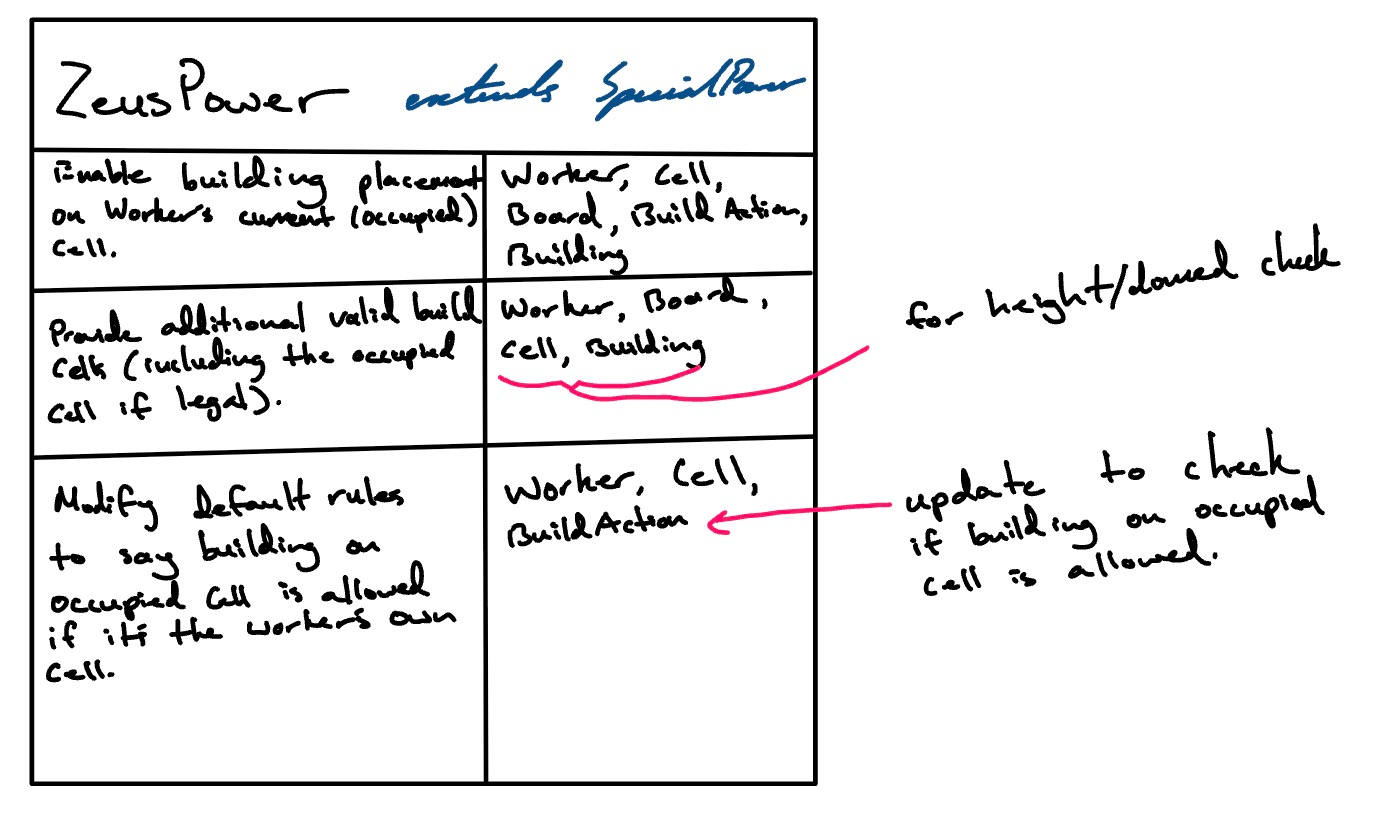 ZeusPower extends SpecialPower
Enable building placement
on Worker's current (occupied)
Cell.
Worker, Cell,
Board, Build Action,
Building
Provide additional valid build
Cells (including the occupied
Cell if legal).
Worker, Board,
Cell, Building
for height/domed check
Modify default rules
to say building on
occupied Cell is allowed
if it's the worker's own
Cell.
Worker, Cell,
BuildAction
update to check
if building on occupied
cell is allowed.